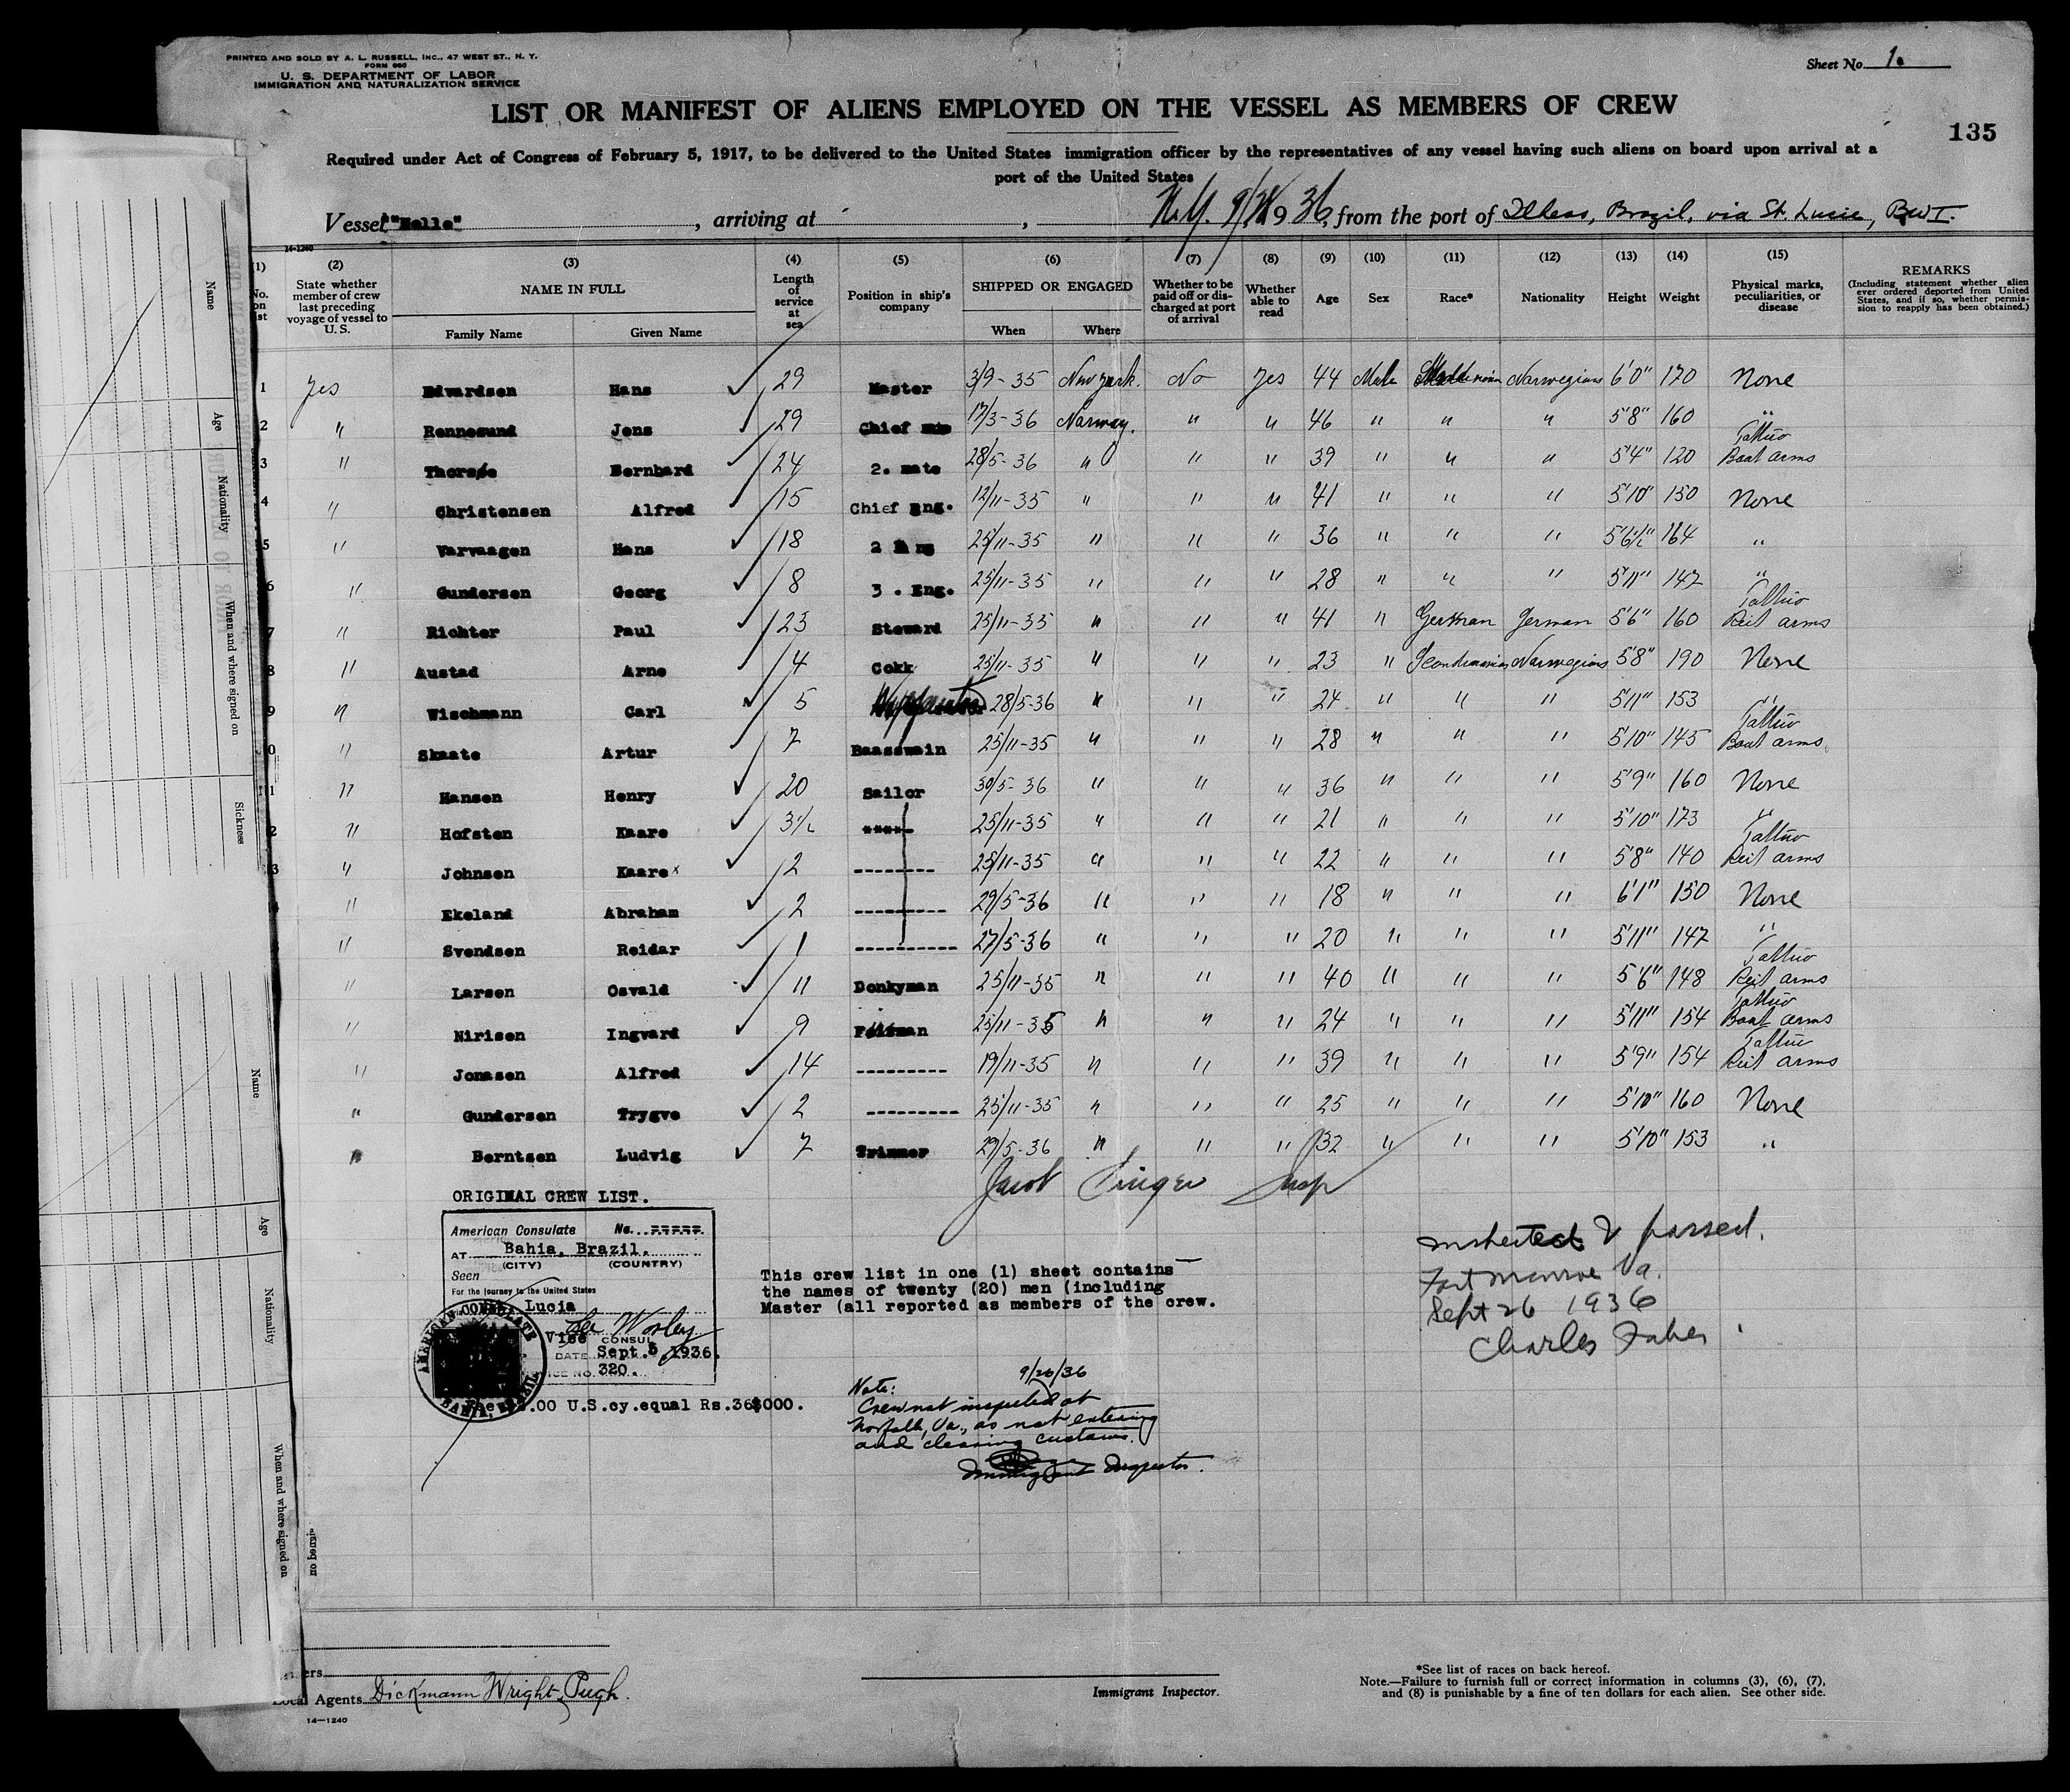 PRINTED AND SOLD BY A. L. RUSSELL, INC., 47 WEST ST., N. Y.
FORM 660
U. S. DEPARTMENT OF LABOR
IMMIGRATION AND NATURALIZATION SERVICE
Sheet No. 1.
LIST OR MANIFEST OF ALIENS EMPLOYED ON THE VESSEL AS MEMBERS OF CREW
135
Required under Act of Congress of February 5, 1917, to be delivered to the United States immigration officer by the representatives of any vessel having such aliens on board upon arrival at a
port of the United States
Vessel, arriving at , N.Y. 1936, from the port of Ilheos, Brazil, via St. Lucia, BWI.
14-1240
(1) (2) (3) (4) (5) (6) (7) (8) (9) (10) (11) (12) (13) (14) (15)
No. on list
State whether member of crew last preceding voyage of vessel to U. S.
NAME IN FULL
Family Name Given Name
Length of service at sea
Position in ship's company
SHIPPED OR ENGAGED
When Where
Whether to be paid off or discharged at port of arrival
Whether able to read
Age Sex Race* Nationality Height Weight
Physical marks, peculiarities, or disease
REMARKS
(Including statement whether alien ever ordered deported from United States, and if so, whether permission to reapply has been obtained.)
1 Yes Edwardsen Hans 29 Master 3/9-35 New York. No Yes 44 Male Norwegian 6'0" 170 None
2 " Rennesund Jens 29 Chief 17/3-36 Norway. " " 46 " " " 5'8" 160 "
3 " Thorsøe Bernhard 24 2. mate 28/5-36 " " " 39 " " " 5'4" 120 Tattoo Boat arms
4 " Christensen Alfred 15 Chief Eng. 12/11-35 " " " 41 " " " 5'10" 150 None
5 " Varvaagen Hans 18 2 25/11-35 " " " 36 " " " 5'6½" 164 "
6 " Gundersen Georg 8 3. Eng. 25/11-35 " " " 28 " " " 5'11" 147 "
7 " Richter Paul 23 Steward 25/11-35 " " " 41 " German German 5'6" 160 Tattoo Reit arms
8 " Austad Arne 4 Cokk 25/11-35 " " " 23 " Scandinavian Norwegian 5'8" 190 None
9 " Wischmann Carl 5 28/5-36 " " " 24 " " " 5'11" 153 "
0 " Skaate Artur 7 Baasswain 25/11-35 " " " 28 " " " 5'10" 145 Tattoo Boat arms
11 " Hansen Henry 20 Sailor 30/5-36 " " " 36 " " " 5'9" 160 None
2 " Hofsten Kaare 3½ 25/11-35 " " " 21 " " " 5'10" 173 "
3 " Johnsen Kaare x 2 -------- 25/11-35 " " " 22 " " " 5'8" 140 Tattoo Reit arms
" Ekeland Abraham 2 --------- 29/5-36 " " " 18 " " " 6'1" 150 None
" Svendsen Reidar 1 ---------- 27/5-36 " " " 20 " " " 5'11" 147 "
" Larsen Osvald 11 Donkyman 25/11-35 " " " 40 " " " 5'6" 148 Tattoo Reit arms
" Nirisen Ingvard 9 25/11-35 " " " 24 " " " 5'11" 154 Tattoo Boat arms
" Jonasen Alfred 14 --------- 19/11-35 " " " 39 " " " 5'9" 154 Tattoo Reit arms
" Gundersen Trygve 2 --------- 25/11-35 " " " 25 " " " 5'10" 160 None
" Berntsen Ludvig 7 Trimmer 29/5-36 " " " 32 " " " 5'10" 153 "
Jacob Singer Insp
ORIGINAL CREW LIST.
American Consulate No.
AT Bahia, Brazil.
(CITY) (COUNTRY)
Seen
For the journey to the United States
Lucia
Vice CONSUL
DATE Sept. 5, 1936.
320.
AMERICAN CONSULATE
BAHIA, BRAZIL
.00 U.S.cy.equal Rs.36$000.
This crew list in one (1) sheet contains
the names of twenty (20) men (including
Master (all reported as members of the crew.
inspected & passed.
Fort Monroe Va.
Sept 26 1936
Charles Faber
9/26/36
Note:
Crew not inspected at
Norfolk, Va., as not entering
and clearing customs.
Immigrant Inspector.
Local Agents Dickmann Wright & Pugh.
14—1240
Immigrant Inspector.
*See list of races on back hereof.
Note.—Failure to furnish full or correct information in columns (3), (6), (7),
and (8) is punishable by a fine of ten dollars for each alien. See other side.
Name
Age
Nationality
When and where signed on
Sickness
Name
Age
Nationality
When and where signed on